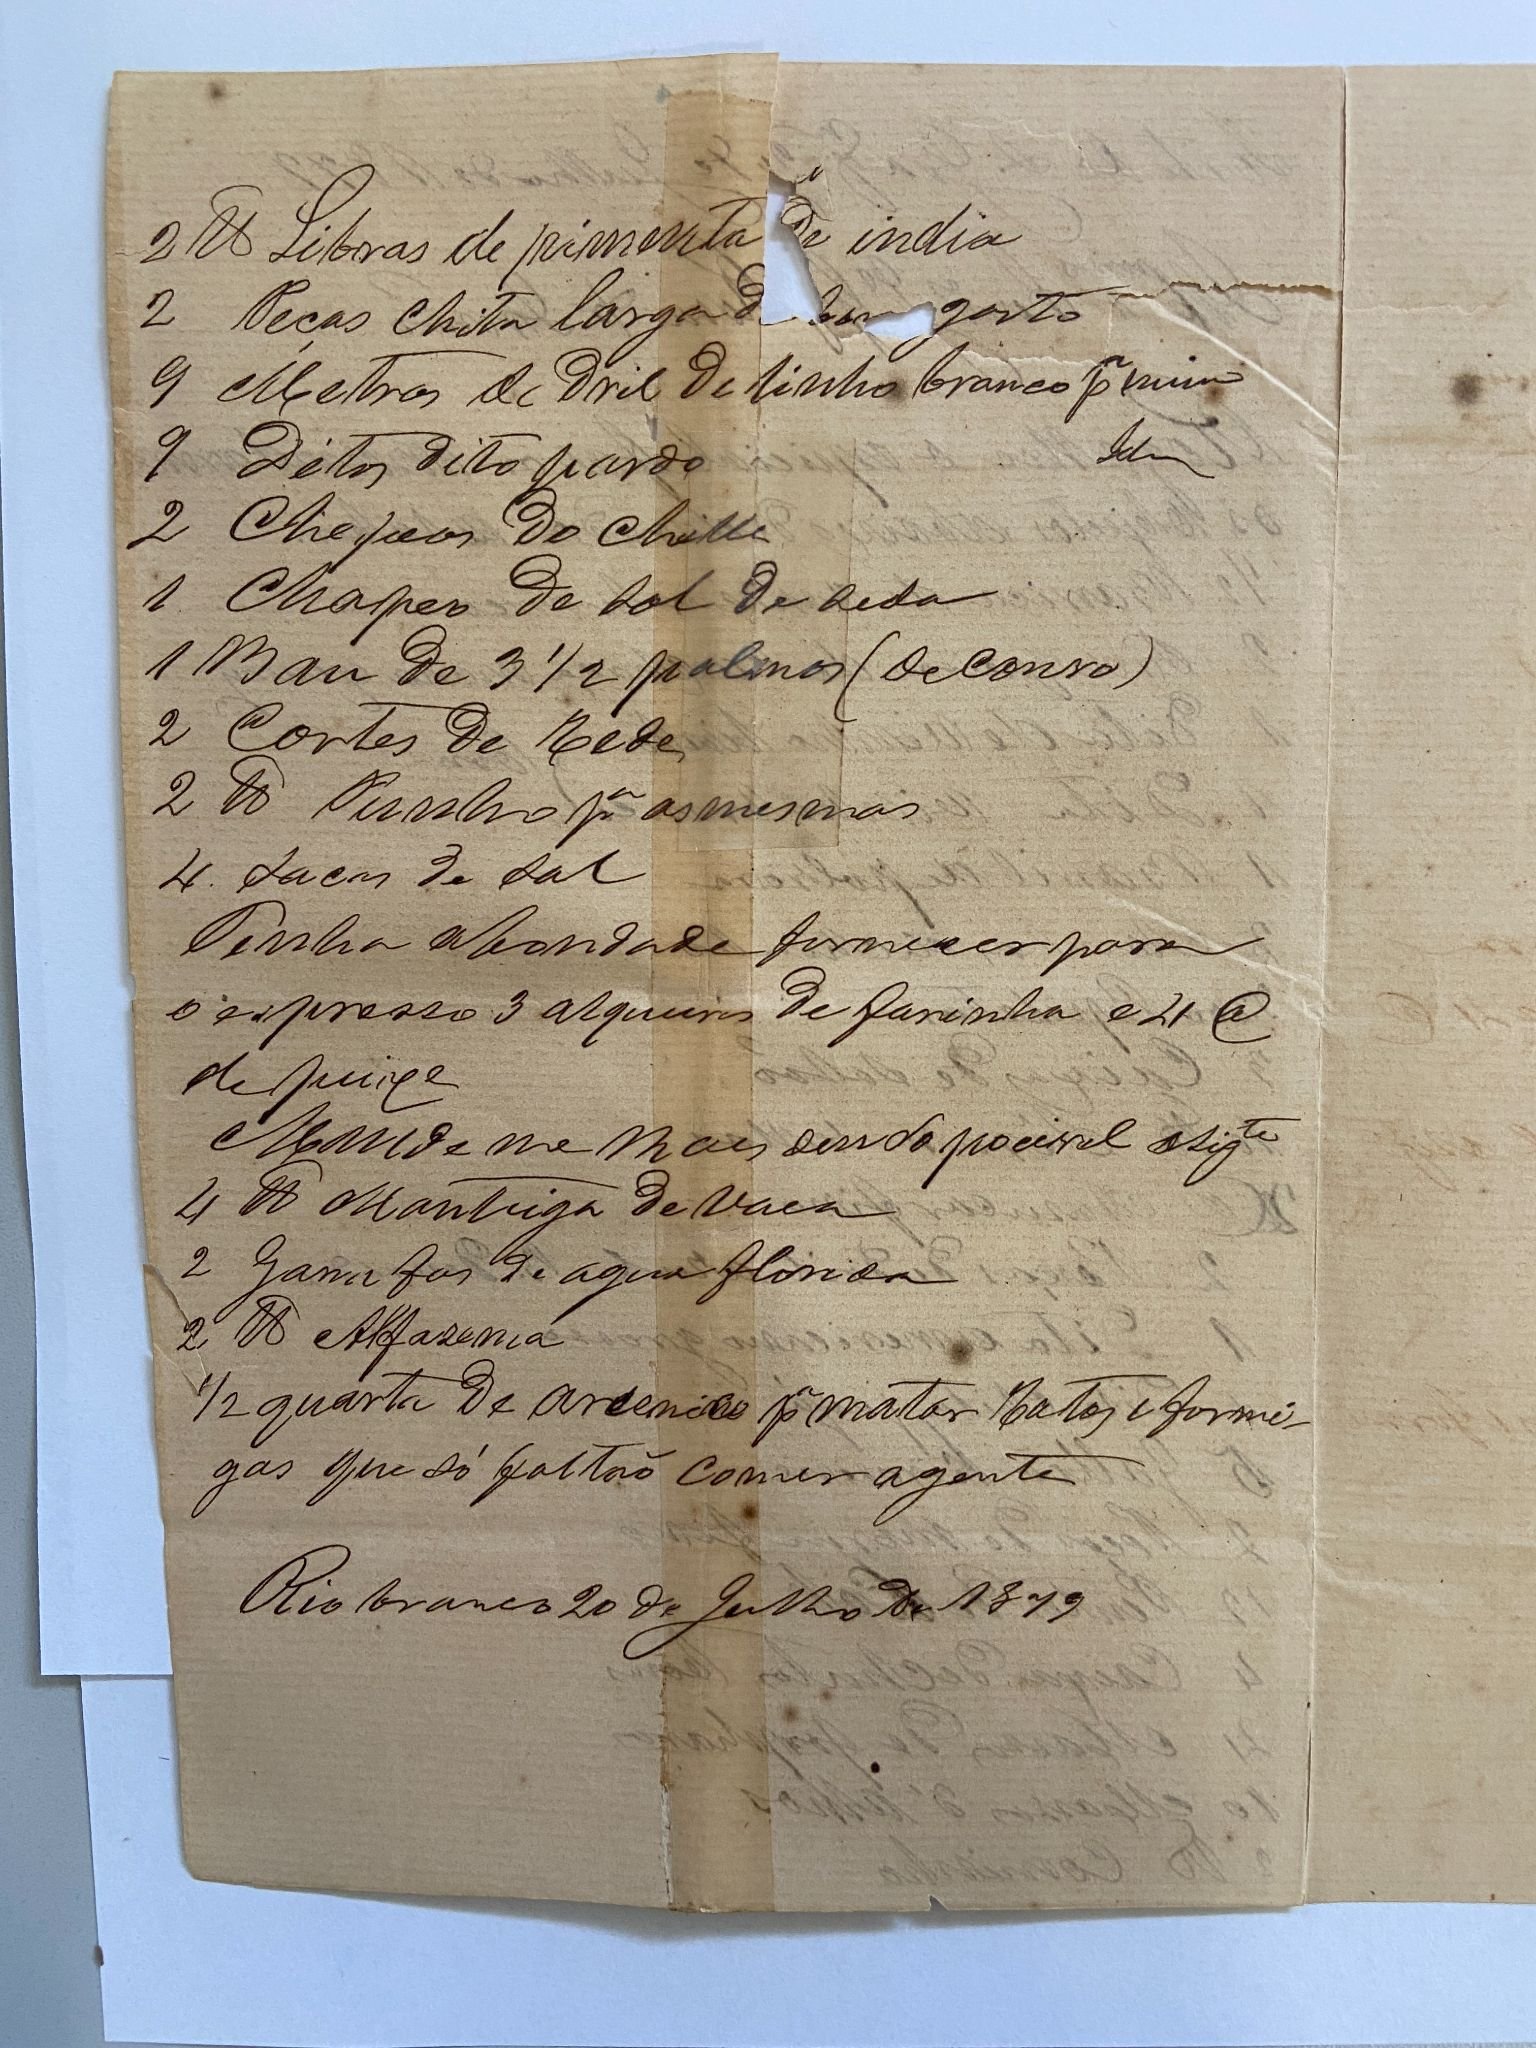 2 ℔ Libras de pimenta da india
2 Pecas chita larga de bom gosto
9 Metros de Dril de linho branco pª mim
9 Ditos dito pardo Idm
2 Chepeos do Chille
1 Chapeo de sol de seda
1 Bau de 3 1/2 palmos (de Couro)
2 Cortes de Rede
2 ℔ Punho pª as mesmas
4. sacas de sal
Tenha abondade fornecer para
o expresso 3 alqueires de farinha e 4 @
de peixe
Mande me mais sendo pocivel o sigte
4 ℔ Manteiga de vaca
2 Garrafas de agua florida
2 ℔ Alfazema
1/2 quarta de arcenico pª matar Ratos e formi-
gas que só faltaõ comer agente
Rio branco 20 de Julho de 1879